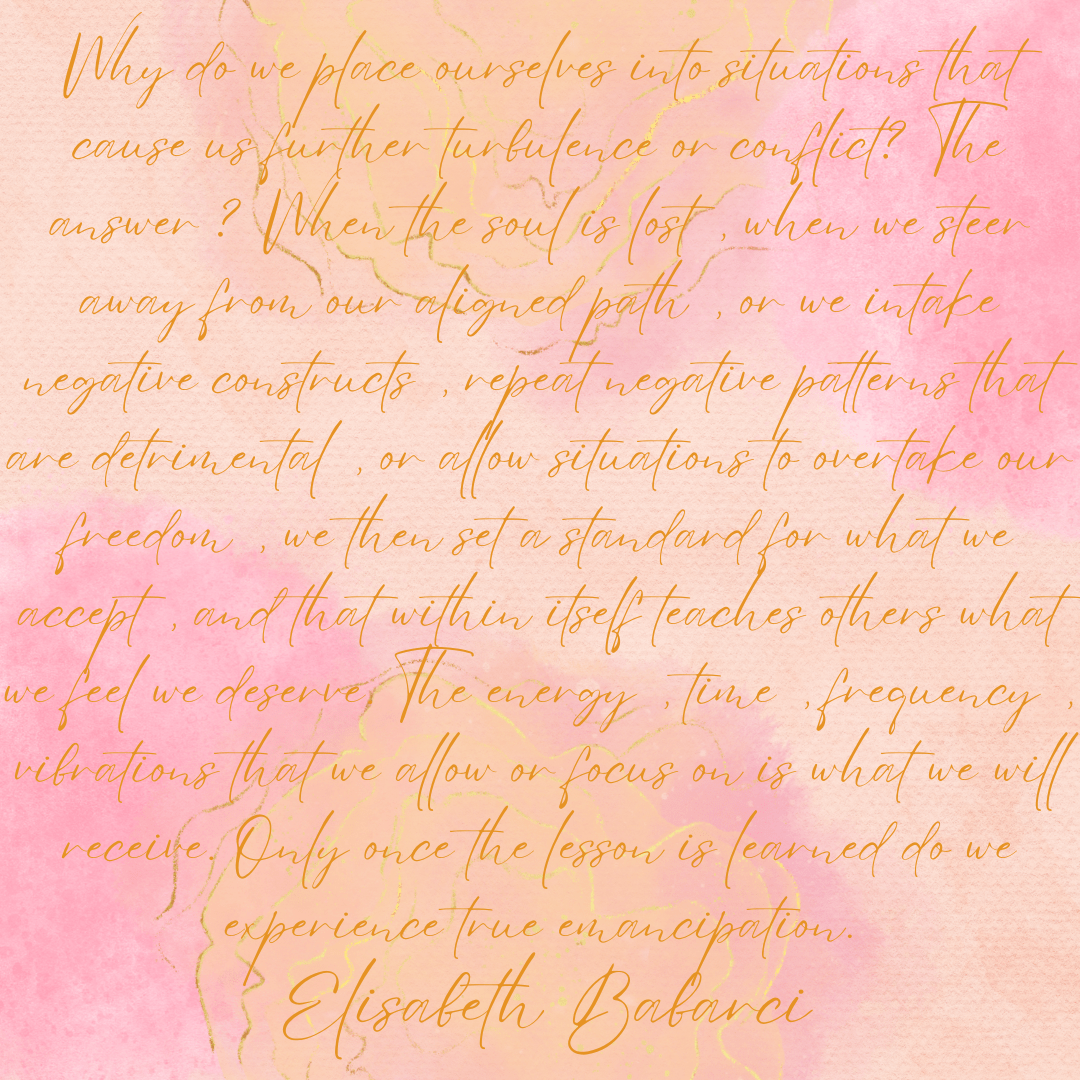 Why do we place ourselves into situations that
cause us further turbulence or conflict? The
answer ? When the soul is lost , when we steer
away from our aligned path , or we intake
negative constructs , repeat negative patterns that
are detrimental , or allow situations to overtake our
freedom , we then set a standard for what we
accept , and that within itself teaches others what
we feel we deserve. The energy , time , frequency ,
vibrations that we allow or focus on is what we will
receive. Only once the lesson is learned do we
experience true emancipation.
Elisabeth Babarci